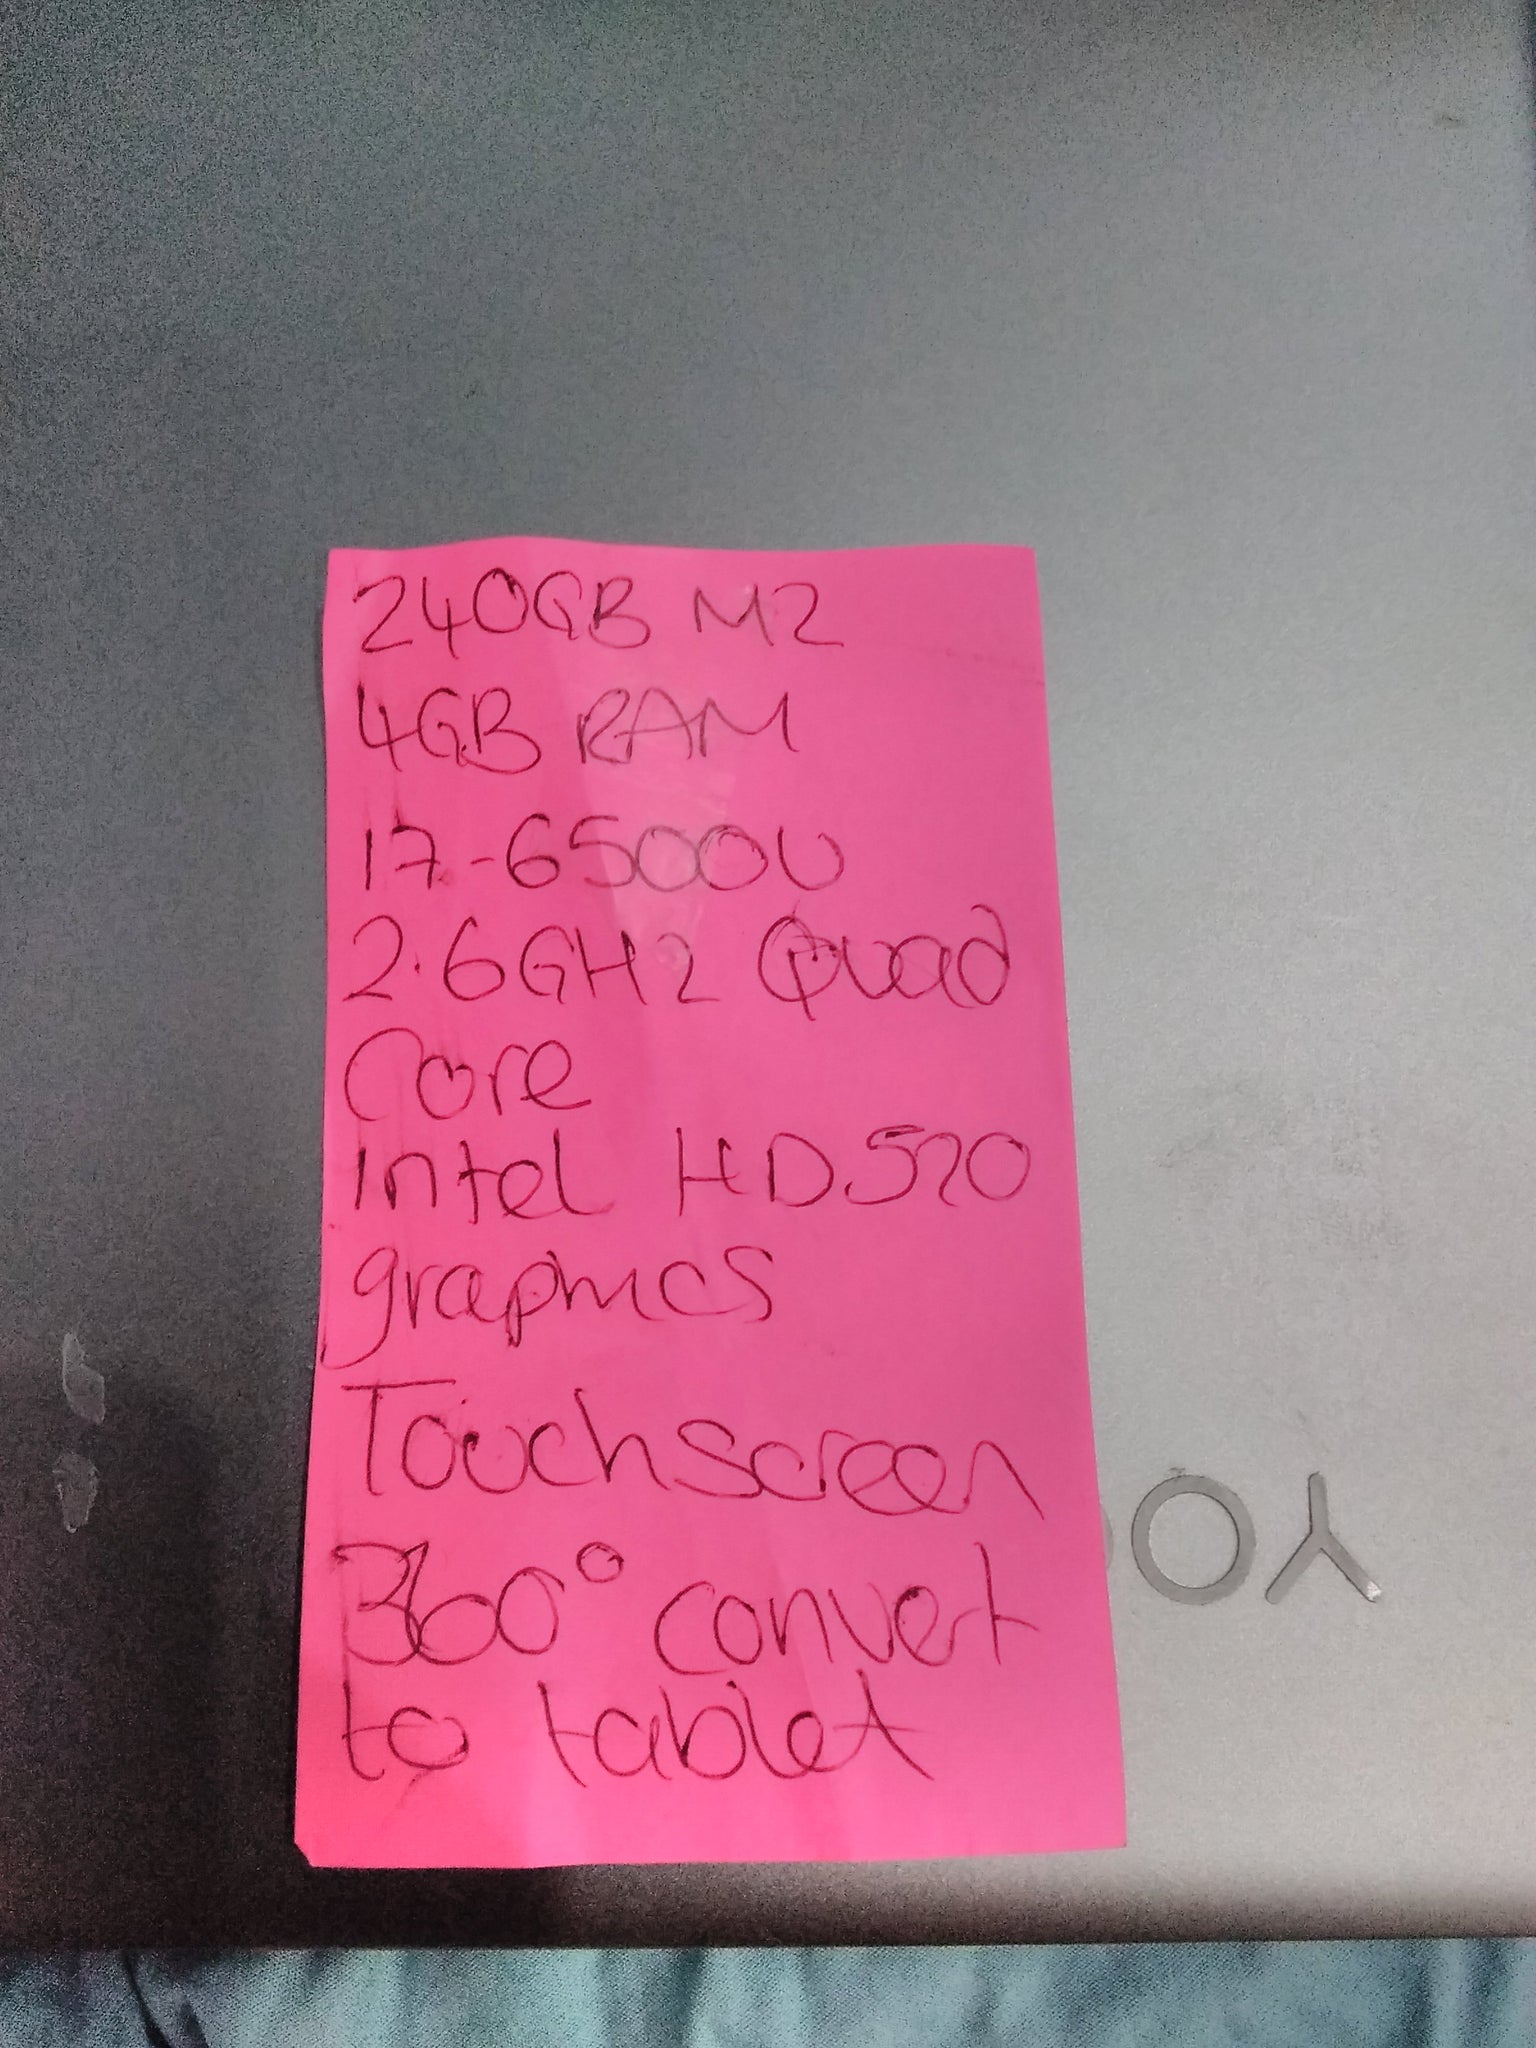 240GB M2
4GB RAM
i7-6500U
2.6GHz Quad
Core
intel HD520
graphics
Touchscreen
360° convert
to tablet
YO